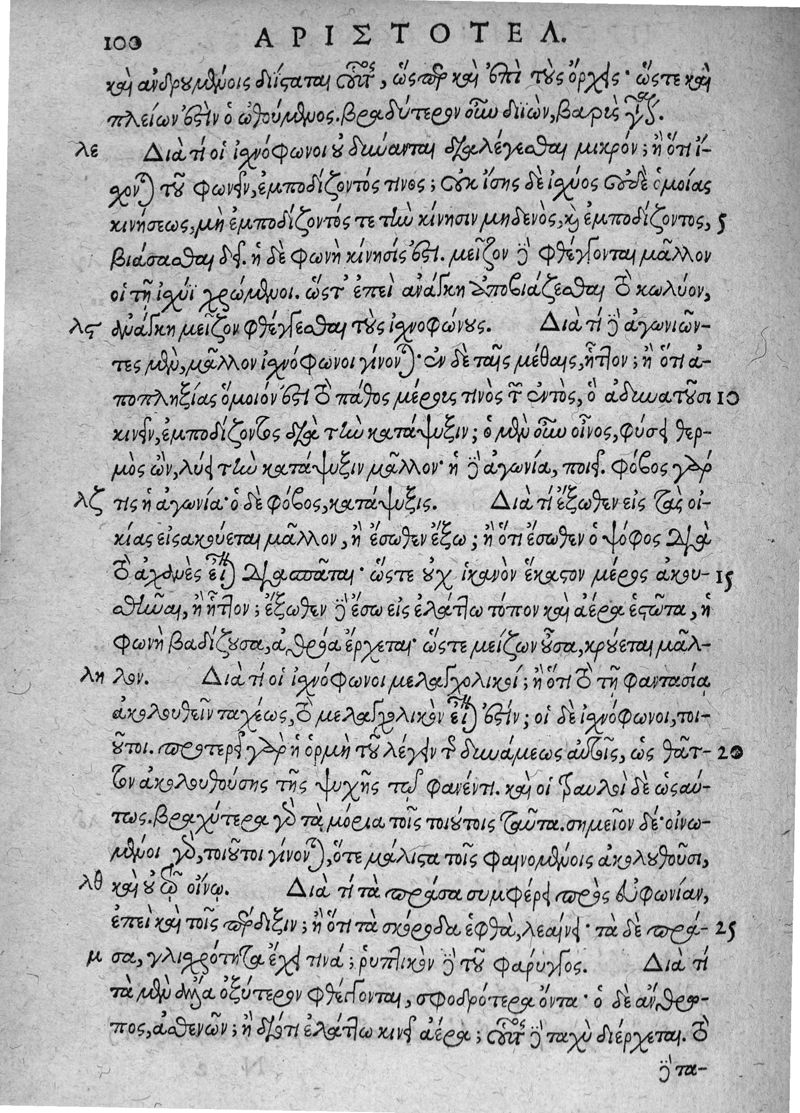 100 ΑΡΙΣΤΟΤΕΛ.
καὶ ἀνδρουμένοις διίσταται οὗτος, ὥσπερ καὶ ἐπὶ τοὺς ὄρχεις· ὥστε καὶ
πλείων ἐστὶν ὁ ὠθούμενος. βραδύτερον οὖν διϊὼν, βαρὺς
λε Διὰ τί οἱ ἰσχνόφωνοι οὐ δύνανται διαλέγεσθαι μικρόν; ἢ ὅτι ἴ-
σχονται τοῦ φωνεῖν, ἐμποδίζοντός τινος; οὐκ ἴσης δὲ ἰσχύος οὐδὲ ὁμοίας
κινήσεως, μὴ ἐμποδίζοντός τε τὴν κίνησιν μηδενὸς, καὶ ἐμποδίζοντος, 5
βιάσασθαι δεῖ. ἡ δὲ φωνὴ κίνησίς ἐστι. μεῖζον δὲ φθέγγονται μᾶλλον
οἱ τῇ ἰσχύϊ χρώμενοι. ὥστ' ἐπεὶ ἀνάγκη ἀποβιάζεσθαι τὸ κωλύον,
λϛ ἀνάγκη μεῖζον φθέγγεσθαι τοὺς ἰσχνοφώνους. Διὰ τί δὲ ἀγωνιῶν-
τες μὲν, μᾶλλον ἰσχνόφωνοι γίνονται· ἐν δὲ ταῖς μέθαις, ἧττον; ἢ ὅτι ἀ-
ποπληξίας ὅμοιόν ἐστι τὸ πάθος μέρους τινὸς τῶν ἐντὸς, ὃ ἀδυνατοῦσι 10
κινεῖν, ἐμποδίζοντος διὰ τὴν κατάψυξιν; ὁ μὲν οὖν οἶνος, φύσει θερ-
μὸς ὢν, λύει τὴν κατάψυξιν μᾶλλον· ἡ δὲ ἀγωνία, ποιεῖ. φόβος γάρ
λζ τις ἡ ἀγωνία· ὁ δὲ φόβος, κατάψυξις. Διὰ τί ἔξωθεν εἰς τὰς οἰ-
κίας εἰσακούεται μᾶλλον, ἢ ἔσωθεν ἔξω; ἢ ὅτι ἔσωθεν ὁ ψόφος διὰ
τὸ ἀχανὲς εἶναι διασπᾶται· ὥστε οὐχ ἱκανὸν ἕκαστον μέρος ἀκου- 15
σθῆναι, ἢ ἧττον; ἔξωθεν δὲ ἔσω εἰς ἐλάττω τόπον καὶ ἀέρα ἑστῶτα, ἡ
φωνὴ βαδίζουσα, ἀθρόα ἔρχεται· ὥστε μείζων οὖσα, κρούεται μᾶλ-
λη λον. Διὰ τί οἱ ἰσχνόφωνοι μελαγχολικοί; ἢ ὅτι τὸ τῇ φαντασίᾳ
ἀκολουθεῖν ταχέως, τὸ μελαγχολικὸν εἶναι ἐστίν; οἱ δὲ ἰσχνόφωνοι, τοι-
οῦτοι. προτερεῖ γὰρ ἡ ὁρμὴ τοῦ λέγειν τῆς δυνάμεως αὐτοῖς, ὡς θᾶτ- 20
τον ἀκολουθούσης τῆς ψυχῆς τῷ φανέντι. καὶ οἱ τραυλοὶ δὲ ὡσαύ-
τως. βραχύτερα γὰρ τὰ μόρια τοῖς τοιούτοις ταῦτα. σημεῖον δέ· οἰνω-
μένοι γὰρ, τοιοῦτοι γίνονται, ὅτε μάλιστα τοῖς φαινομένοις ἀκολουθοῦσι,
λθ καὶ οὐ τῷ οἴνῳ. Διὰ τί τὰ πράσα συμφέρει πρὸς εὐφωνίαν,
ἐπεὶ καὶ τοῖς πέρδιξιν; ἢ ὅτι τὰ σκόροδα ἑφθὰ, λεαίνει· τὰ δὲ πρά- 25
μ σα, γλισχρότητα ἔχει τινά; ῥυπτικὸν δὲ τοῦ φάρυγγος. Διὰ τί
τὰ μὲν ἄλλα ὀξύτερον φθέγγονται, σφοδρότερα ὄντα· ὁ δὲ ἄνθρω-
πος, ἀσθενῶν; ἢ διότι ἐλάττω κινεῖ ἀέρα; οὗτος δὲ ταχὺ διέρχεται. τὸ
δὲ τα-